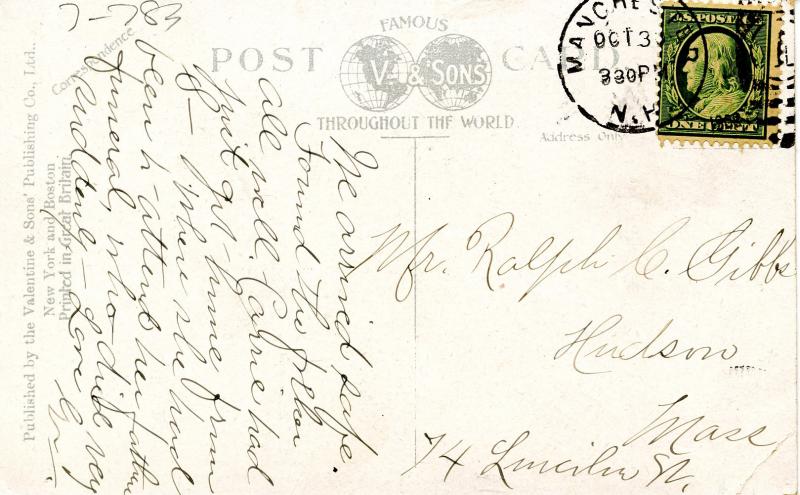 FAMOUS
POST CARD
V. & SONS
THROUGHOUT THE WORLD
Correspondence
Address Only
Published by the Valentine & Sons' Publishing Co., Ltd.,
New York and Boston
Printed in Great Britain
MANCHES
OCT 3
330 PM
N.H.
U.S. POSTAGE
ONE CENT
We arrived safe.
Found the folks
all well. Carrie had
just got home from
B- where she had
been to attend her father
funeral, who died very
suddenly - Love
Mr. Ralph C. Gibbs
Hudson
Mass
74 Lincoln St.